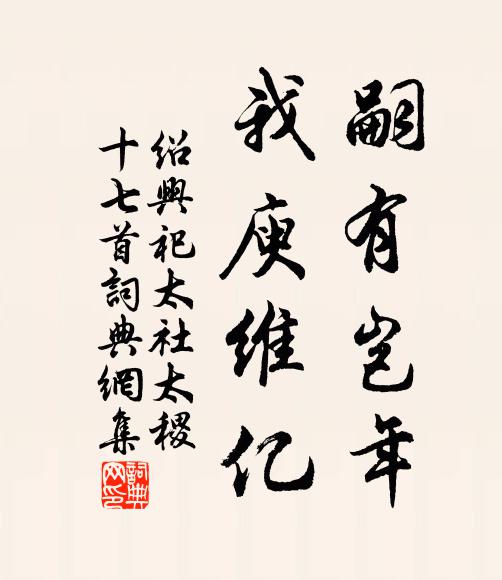 嗣有岂年
我庾维亿
绍興祀太社太稷
十七首詞典網集